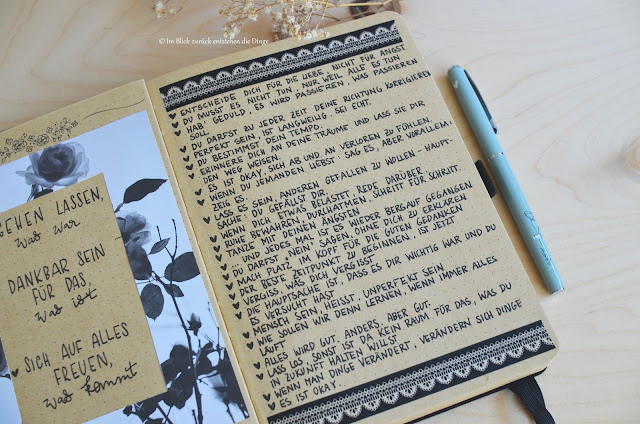 © Im Blick zurück entstehen die Dinge
GEHEN LASSEN,
was war
DANKBAR SEIN
FÜR DAS,
was ist
SICH AUF ALLES
FREUEN,
was kommt
ENTSCHEIDE DICH FÜR DIE LIEBE, NICHT FÜR ANGST
DU MUSST ES NICHT TUN, NUR WEIL ALLE ES TUN
HAB' GEDULD, ES WIRD PASSIEREN, WAS PASSIEREN
SOLL.
DU DARFST ZU JEDER ZEIT DEINE RICHTUNG KORRIGIEREN
PERFEKT SEIN, IST LANGWEILIG. SEI ECHT.
DU BESTIMMST DEIN TEMPO.
ERINNERE DICH AN DEINE TRÄUME UND LASS SIE DIR
DEN WEG WEISEN.
ES IST OKAY, SICH AB UND AN VERLOREN ZU FÜHLEN.
WENN DU JEMANDEN LIEBST: SAG ES, ABER VORALLEM:
ZEIG ES.
LASS ES SEIN, ANDEREN GEFALLEN ZU WOLLEN - HAUPT-
SACHE: DU GEFÄLLST DIR.
WENN DICH ETWAS BELASTET, REDE DARÜBER.
RUHE BEWAHREN, DURCHATMEN, SCHRITT FÜR SCHRITT.
TANZE MIT DEINEN ÄNGSTEN
UND JEDES MAL IST ES WIEDER BERGAUF GEGANGEN
DU DARFST "NEIN" SAGEN, OHNE DICH ZU ERKLÄREN
MACH PLATZ IM KOPF FÜR DIE GUTEN GEDANKEN
DER BESTE ZEITPUNKT ZU BEGINNEN, IST JETZT
VERGISS, WAS DICH VERGISST
DIE HAUPTSACHE IST, DASS ES DIR WICHTIG WAR UND DU
ES VERSUCHT HAST
MENSCH SEIN, HEISST, UNPERFEKT SEIN
WIE SOLLEN WIR DENN LERNEN, WENN IMMER ALLES
LÄUFT
ALLES WIRD GUT. ANDERS, ABER GUT.
LASS LOS, SONST IST DA KEIN RAUM FÜR DAS, WAS DU
IN ZUKUNFT HALTEN WILLST
WENN MAN DINGE VERÄNDERT, VERÄNDERN SICH DINGE
ES IST OKAY.